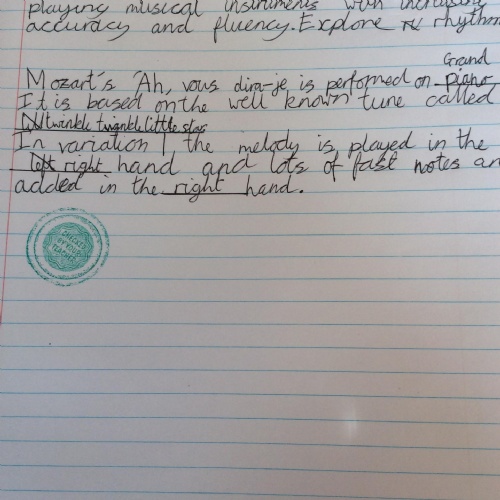 playing musical instruments with increasing
accuracy and fluency. Explore rhythm
Grand
Mozart's 'Ah, vous dira-je is performed on piano
It is based on the well known tune called
twinkle twinkle little star
In variation 1 the melody is played in the
left right hand and lots of fast notes an
added in the right hand.
CHECKED
BY YOUR
TEACHER